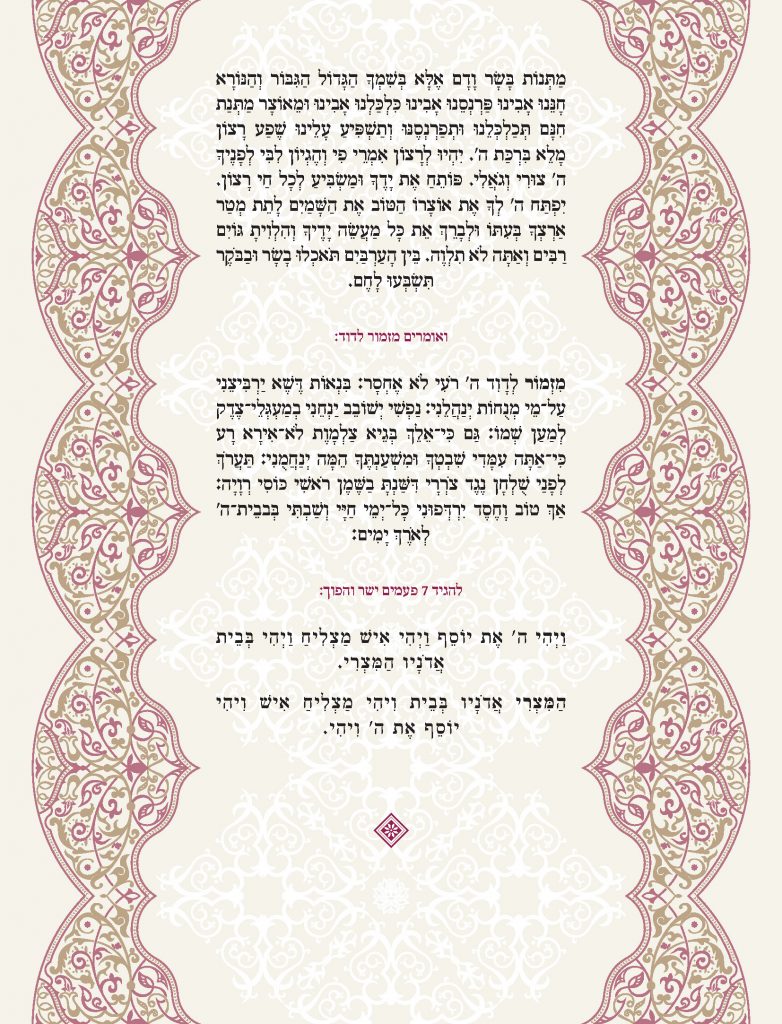 מַתְּנוֹת בָּשָׂר וָדָם אֶלָּא בְּשִׁמְךָ הַגָּדוֹל הַגִּבּוֹר וְהַנּוֹרָא
חָנֵּנוּ אָבִינוּ פַּרְנְסֵנוּ אָבִינוּ כַּלְכְּלֵנוּ אָבִינוּ וּמֵאוֹצַר מַתְּנַת
חִנָּם תְּכַלְכְּלֵנוּ וּתְפַרְנְסֵנוּ וְתַשְׁפִּיעַ עָלֵינוּ שֶׁפַע רָצוֹן
מָלֵא בִּרְכַּת ה׳. יִהְיוּ לְרָצוֹן אִמְרֵי פִי וְהֶגְיוֹן לִבִּי לְפָנֶיךָ
ה׳ צוּרִי וְגֹאֲלִי. פּוֹתֵחַ אֶת יָדֶךָ וּמַשְׂבִּיעַ לְכָל חַי רָצוֹן.
יִפְתַּח ה׳ לְךָ אֶת אוֹצָרוֹ הַטּוֹב אֶת הַשָּׁמַיִם לָתֵת מְטַר
אַרְצְךָ בְּעִתּוֹ וּלְבָרֵךְ אֵת כָּל מַעֲשֵׂה יָדֶיךָ וְהִלְוִיתָ גּוֹיִם
רַבִּים וְאַתָּה לֹא תִלְוֶה. בֵּין הָעַרְבַּיִם תֹּאכְלוּ בָשָׂר וּבַבֹּקֶר
תִּשְׂבְּעוּ לָחֶם.
ואומרים מזמור לדוד:
מִזְמוֹר לְדָוִד ה׳ רֹעִי לֹא אֶחְסָר׃ בִּנְאוֹת דֶּשֶׁא יַרְבִּיצֵנִי
עַל־מֵי מְנֻחוֹת יְנַהֲלֵנִי׃ נַפְשִׁי יְשׁוֹבֵב יַנְחֵנִי בְמַעְגְּלֵי־צֶדֶק
לְמַעַן שְׁמוֹ׃ גַּם כִּי־אֵלֵךְ בְּגֵיא צַלְמָוֶת לֹא־אִירָא רָע
כִּי־אַתָּה עִמָּדִי שִׁבְטְךָ וּמִשְׁעַנְתֶּךָ הֵמָּה יְנַחֲמֻנִי׃ תַּעֲרֹךְ
לְפָנַי שֻׁלְחָן נֶגֶד צֹרְרָי דִּשַּׁנְתָּ בַשֶּׁמֶן רֹאשִׁי כּוֹסִי רְוָיָה׃
אַךְ טוֹב וָחֶסֶד יִרְדְּפוּנִי כָּל־יְמֵי חַיָּי וְשַׁבְתִּי בְּבבֵית־ה׳
לְאֹרֶךְ יָמִים׃
להגיד 7 פעמים ישר והפוך:
וַיְהִי ה׳ אֶת יוֹסֵף וַיְהִי אִישׁ מַצְלִיחַ וַיְהִי בְּבֵית
אֲדֹנָיו הַמִּצְרִי.
הַמִּצְרִי אֲדֹנָיו בְּבֵית וִיהִי מַצְלִיחַ אִישׁ וִיהִי
יוֹסֵף אֶת ה׳ וִיהִי.